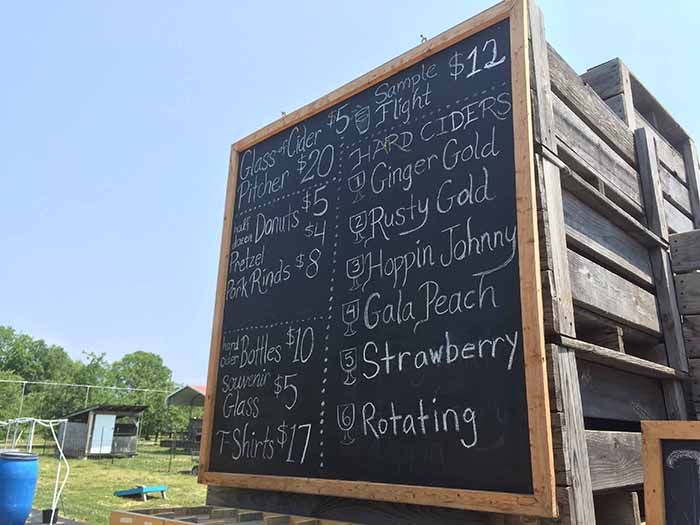 Glass of Cider $5
Pitcher $20
half
dozen Donuts $5
Pretzel $4
Pork Rinds $8
hard
cider Bottles $10
Souvenir
Glass $5
T-Shirts $17
Sample
Flight $12
HARD CIDERS
1 Ginger Gold
2 Rusty Gold
3 Hoppin Johnny
4 Gala Peach
5 Strawberry
6 Rotating